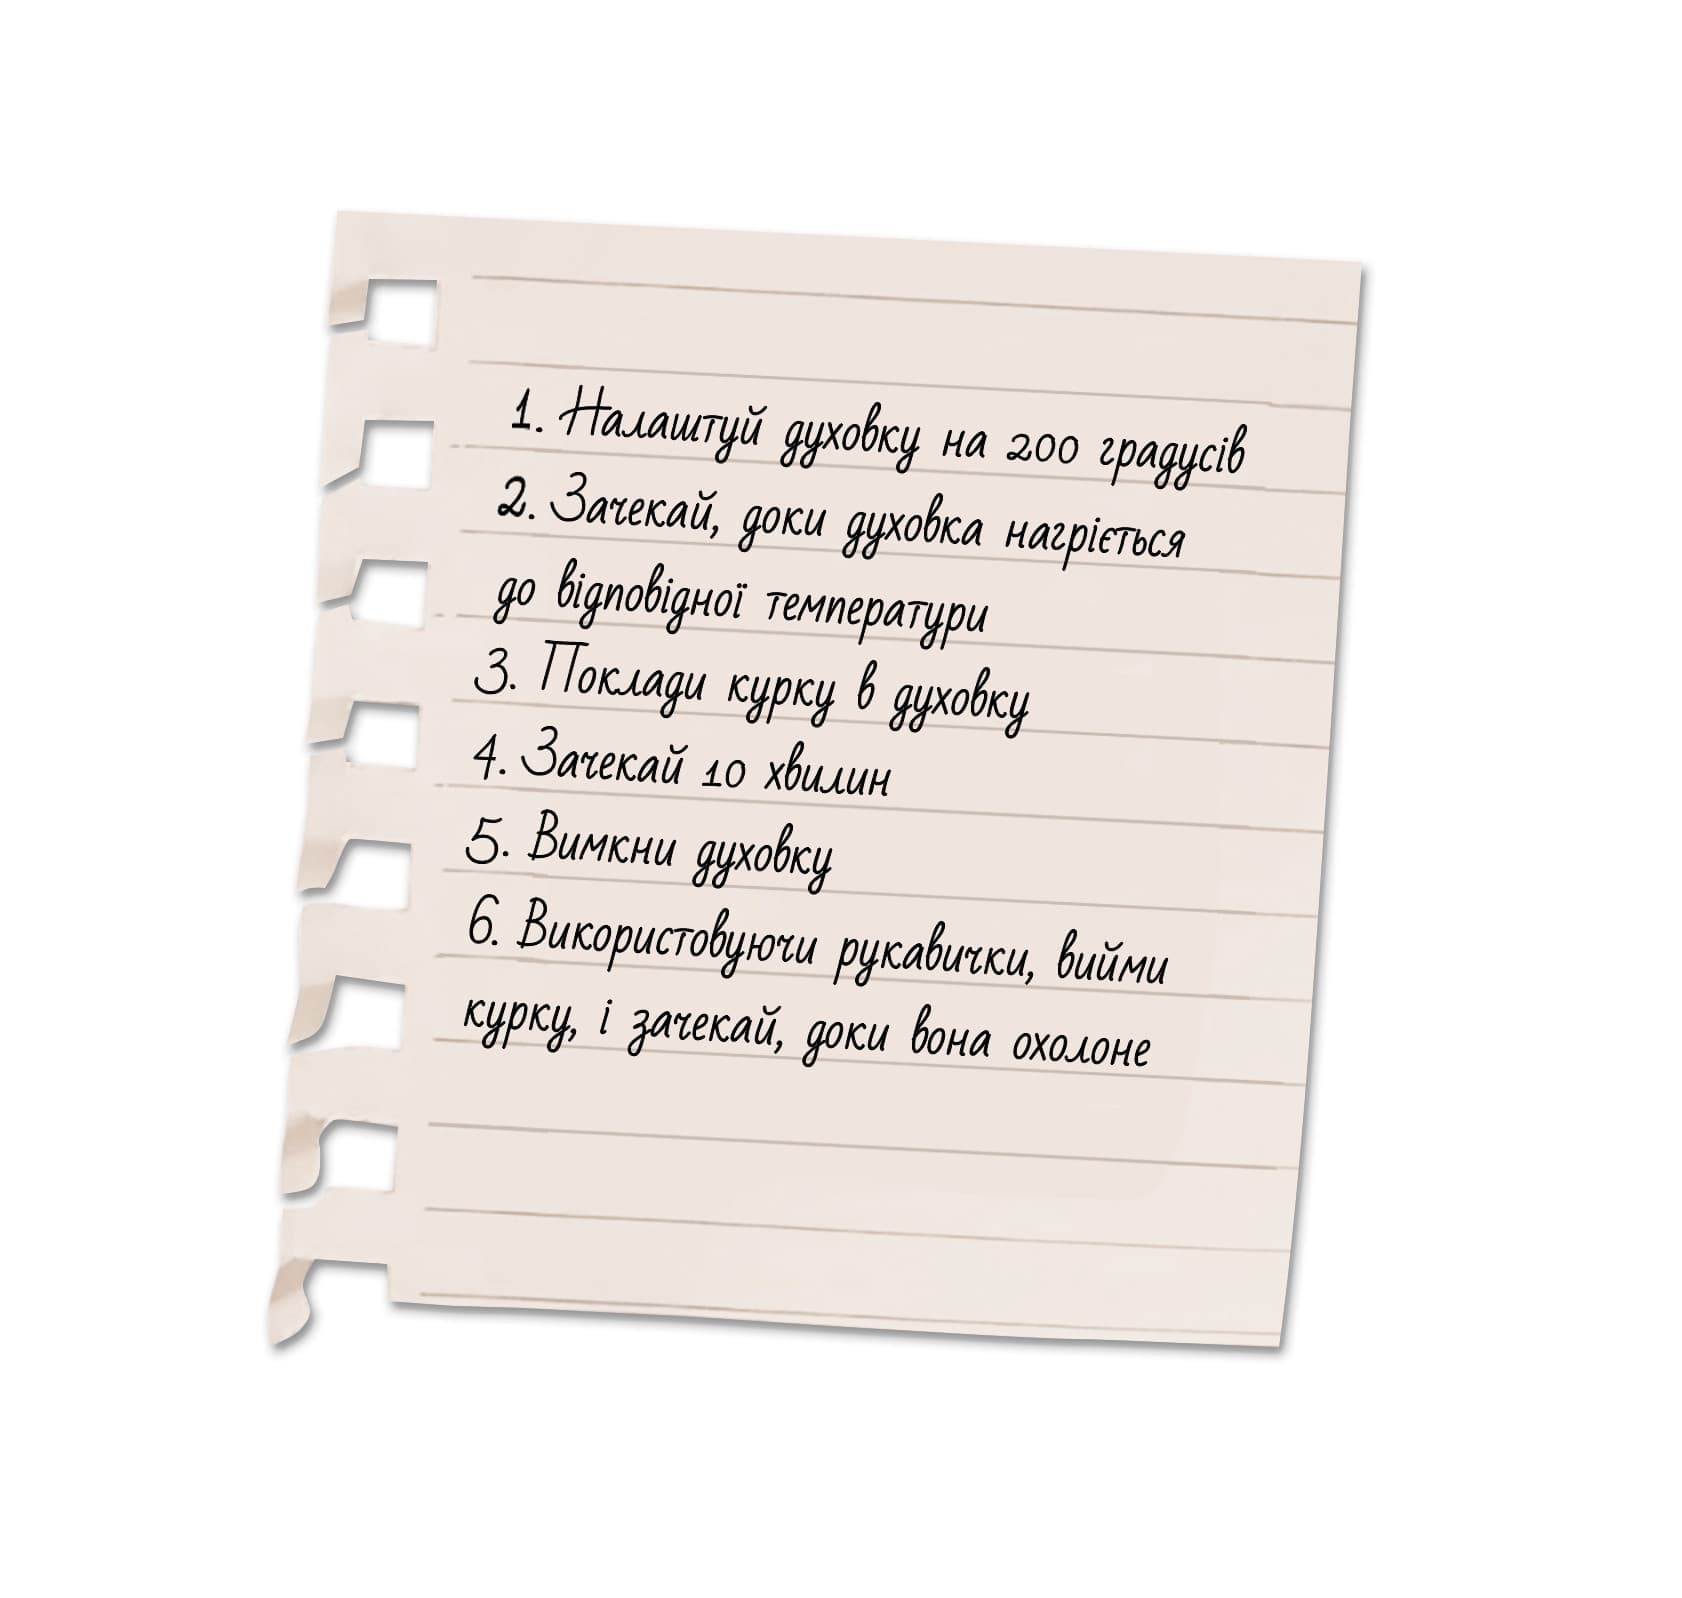 1. Налаштуй духовку на 200 градусів
2. Зачекай, доки духовка нагріється
до відповідної температури
3. Поклади курку в духовку
4. Зачекай 10 хвилин
5. Вимкни духовку
6. Використовуючи рукавички, вийми
курку, і зачекай, доки вона охолоне